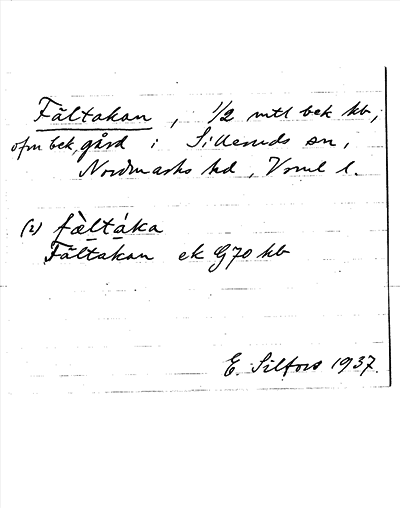 Fältakan, 1/2 mtl bek kb,
ofm bek, gård i Silleruds sn,
Nordmarks hd, Vrml l.
(2) fὲltáka
Fältakan ek G70 kb
E. Silfors 1937.